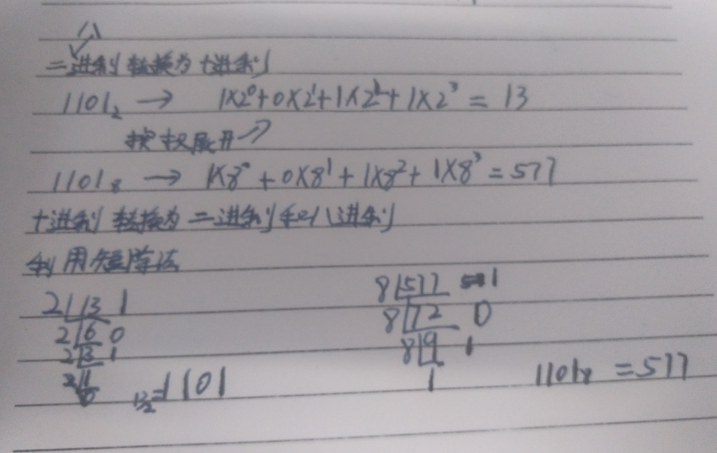 八
二进制转换为十进制
1101₂ → 1×2⁰+0×2¹+1×2²+1×2³=13
按权展开
1101₈ → 1×8⁰+0×8¹+1×8²+1×8³=577
十进制转换为二进制和八进制
利用短除法
2 13 1
2 6 0
2 3 1
2 1
0
13₂=1101
8 577 1
8 72 0
8 9 1
1
1101₈=577